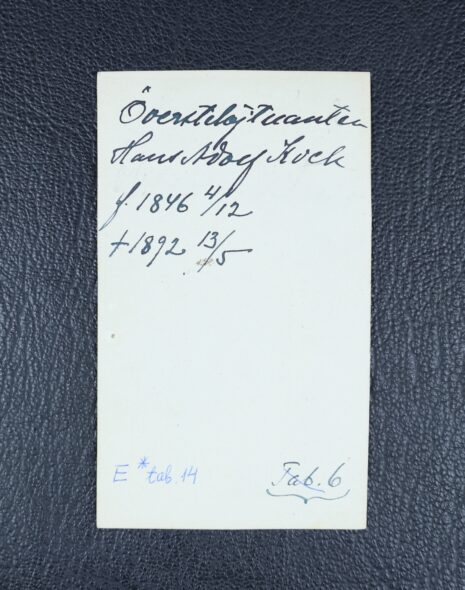 Överstelöjtnanten
Hans Adolf Koch
f. 1846 4/12
† 1892 13/5
E * tab. 14
Tab. 6